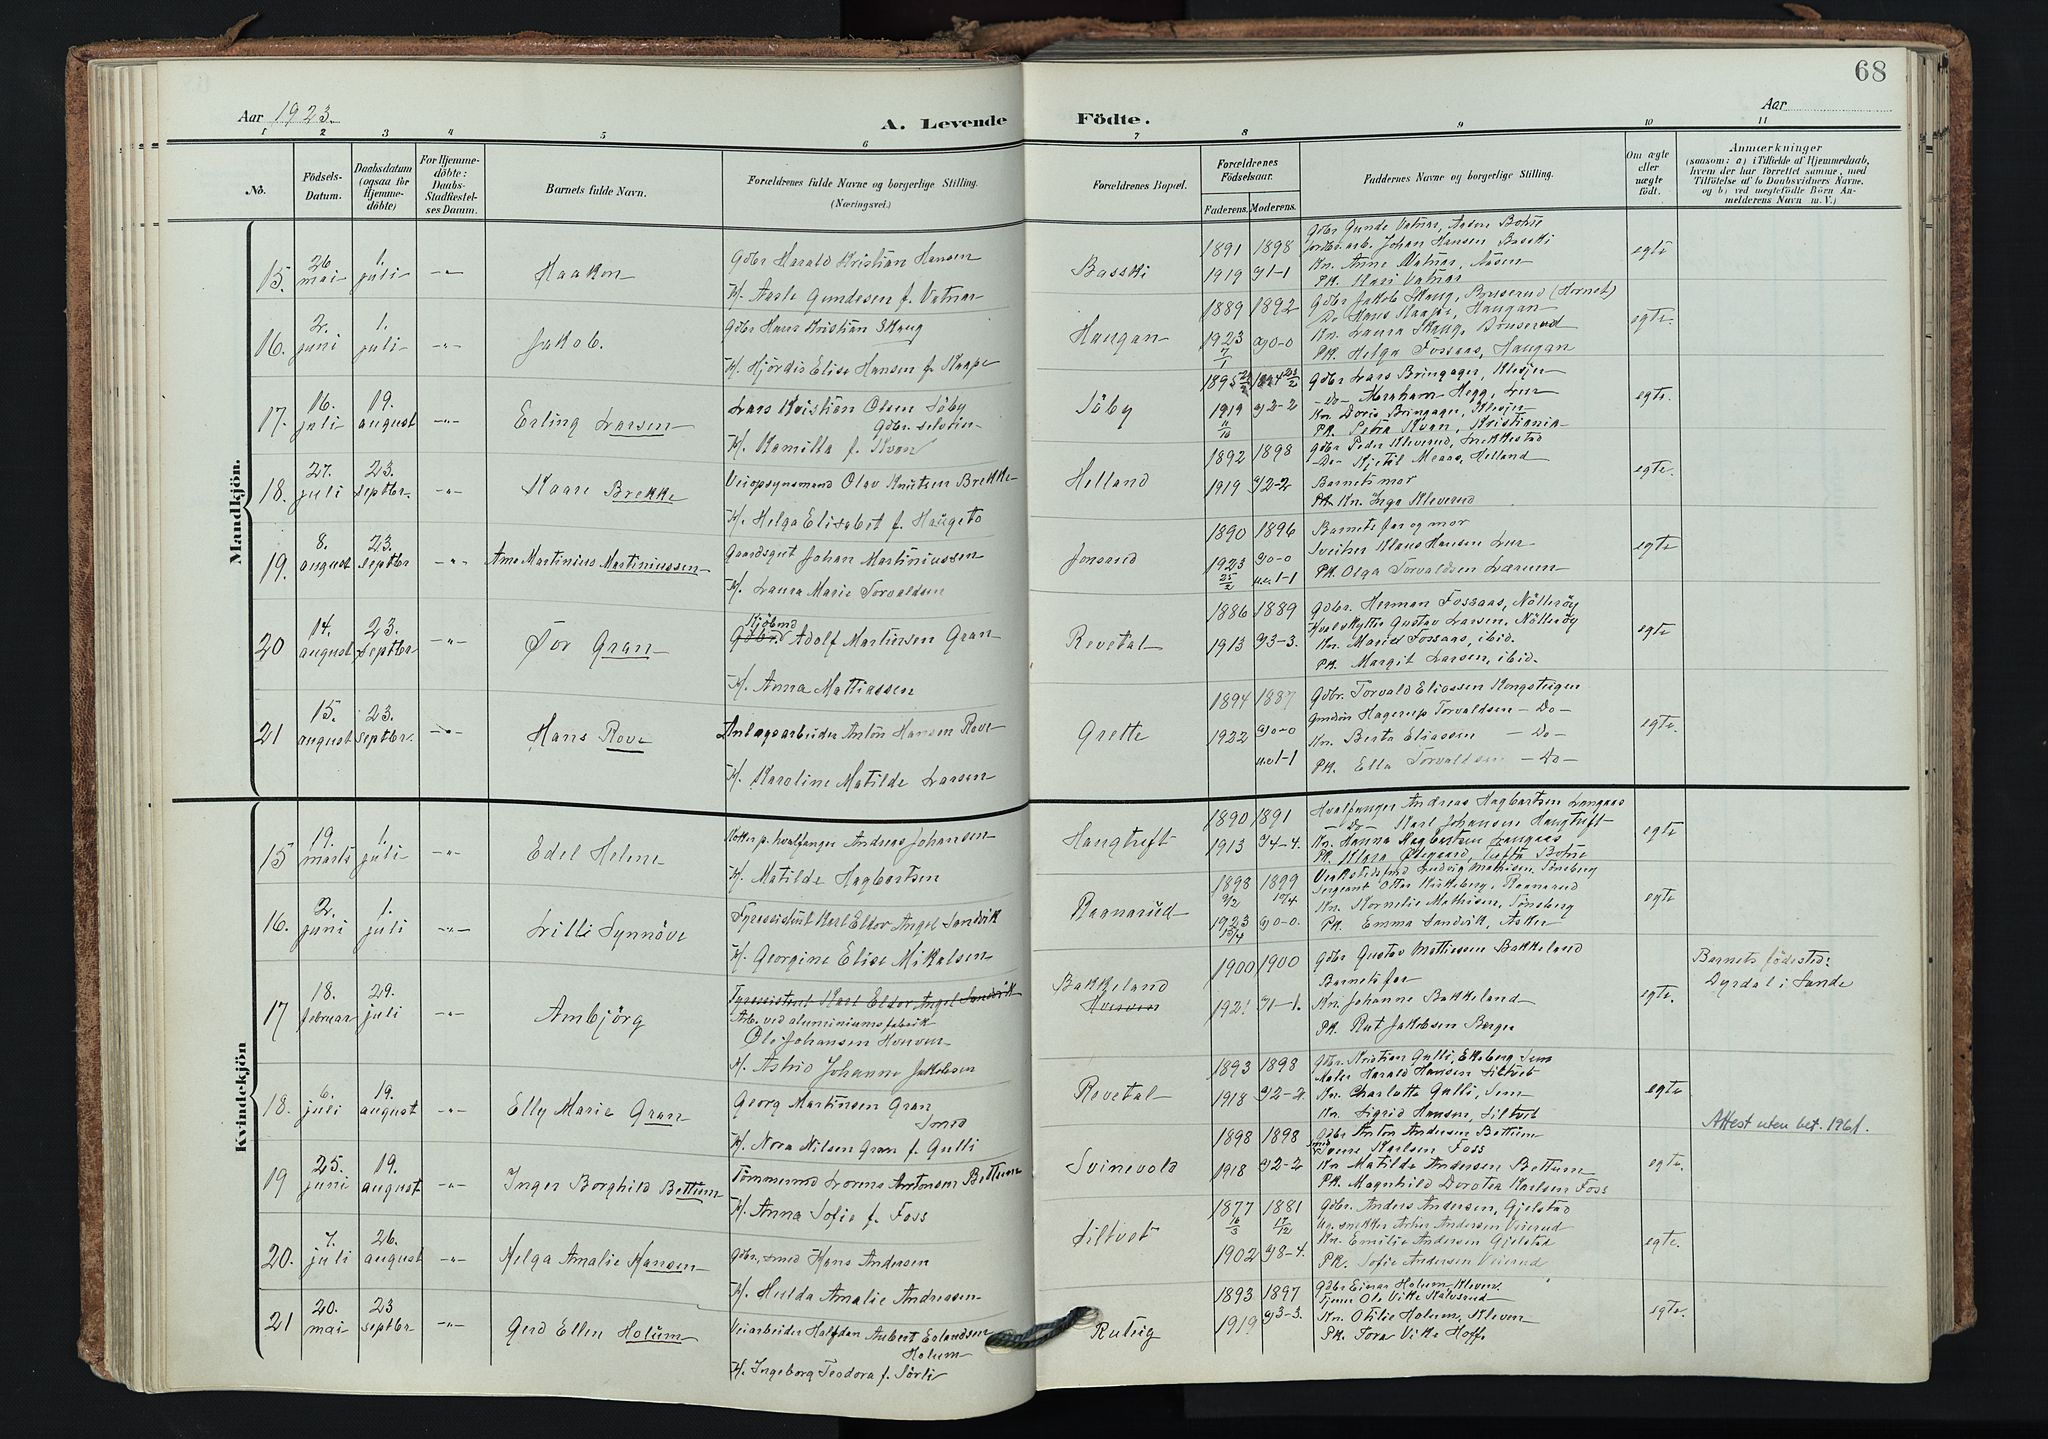 68
Aar 1923.
A. Levende Födte.
Aar
1 2 3 4 5 6 7 8 9 10 11
No.
Födsels-Datum.
Daabsdatum (ogsaa for Hjemme-döbte)
For Hjemme-döbte: Daabs-Stadfæstel-ses Datum.
Barnets fulde Navn.
Forældrenes fulde Navne og borgerlige Stilling. (Næringsvei.)
Forældrenes Bopæl.
Forældrenes Födselsaar.
Faderens. Moderens.
Faddernes Navne og borgerlige Stilling.
Om ægte eller uægte födt.
Anmærkninger
(saasom: a) i Tilfælde af Hjemmedaab, hvem der har forrettet samme, med Tilföielse af to Daabsvidners Navne, og b) ved uegtefödte Börn An-melderens Navn m. V.)
Mandkjön.
15. 26. mai 1. juli -"- Haakon
Gdbr Harald Kristian Hansen
H. Aasle Gundesen f. Vatnar
Basski
1891 1898
1919 g1-1
Gdbr Gunde Vatnar, Aasen Botne
Johan Hansen Basski
Kn. Anne Vatnar, Aasen
PK. Kari Vatnar
egte
16. 2. juni 1. juli -"- Jakob.
Gdbr Hans Kristian Skaug
H. Hjördis Elise Hansen f. Kaape
Haugan
1889 1892
1923 g0-0
7/1
Gdbr Jakob Skaug, Bruserud (Hornet)
Do Hans Kaape, Haugan
Kn. Laura Skaug, Bruserud
PK. Helga Fossaas, Haugan
egte.
17. 16. juli 19. august -"- Erling Larsen
Lars Kristian Olsen Söby
Gdbr. selveier
H. Kamilla f. Kvan
Söby
1919 g2-2
11/10
Gdbr Lars Bringager, Klesjer
-Do- Abraham Hegg, Lur
Kn. Doris Bringager, Klesjer
PK. Petra Kvan, Kristiania
egte.
18. 27. juli 23. septbr. -"- Kaare Brekke
Veiopsynsmand Olav Knutsen Brekke
H. Helga Elisabet f. Haugeto
Helland
1892 1898
1919 g2-2
Gdbr Peder Kleverud, Frekkestad
-Do- Kjetil Meaas, Helland
Barnets mor
PK Kn. Inga Kleverud
egte.
19. 8. august 23. septbr -"- Arne Martinius Martiniussen
Gaardsgut Johan Martiniussen
H. Laura Marie Torvaldsen
Jonsrud
1890 1896
1923 g0-0
25/2 u.e. 1-1
Barnets far og mor
Sveiher Klaus Hansen Lur
PK. Olga Torvaldsen Lærum
egte
20 14. august 23. septbr -"- Tor Gran
Kjöbmd
Gdbr. Adolf Martinsen Gran
H. Anna Mathiassen
Revetal
1886 1889
1913 g3-3.
Gdbr. Herman Fossaas, Nötteröy
Hvalskytter Gustav Larsen, Nötteröy
Kn. Marie Fossaas, ibid.
PK. Margit Larsen, ibid.
egte
21 15. august 23. septbr. -"- Hans Rove
Anlægsarbeider Anton Hansen Rove
H. Karoline Matilde Larsen
Grette
1894 1887
1922 g0-0
u.e 1-1
Gdbr. Torvald Eliassen Kongsteigen
Hagerup Torvaldsen -Do-
Kn. Berta Eliassen -Do-
PK. Ella Torvaldsen -Do-
egte.
Kvindekjön
15 19. marts 1. juli -"- Edel Helene
hvalfanger Andreas Johansen
H. Matilde Hagbartsen
Haugtuft
1890 1891
1913 g4-4.
Hvalfanger Andreas Hagbartsen Langaas
-Do- Karl Johansen Haugtuft
Kn. Hanna Hagbartsen Langaas
PK. Klara Ödegaard, Tufta Botne
egte
16. 2. juni 1. juli -"- Lilli Synnöve
Fyrassistent Karl Eldor Angel Sandvik
H. Georgine Elise Mikalsen
Raanarud
1898 1899
9/2 10/4
1923 g0-0.
13/4
Verkstedsmd Ludvig Mathisen, Tönsberg
Sergeant Otto Kirkeberg, Raanarud
Kn. Kornelie Mathisen, Tönsberg
PK. Emma Sandvik, Asker
egte
17 18. februar 29. juli -"- Arnbjörg
Fyrassistent Karl Eldor Angel Sandvik
Arb. ved aluminiumsfabrik
Ole Johansen Horven
H. Astrid Johanne Jakobsen
Bakkeland
Horven
1900 1900
1921 g1-1.
Gdbr Gustav Mathissen Bakkeland
Barnets far
Kn. Johanne Bakkeland
PK. Rut Jakobsen Berger
egte.
Barnets födested:
Dyrdal i Sande
18. 6. juli 19. august -"- Elly Marie Gran
Georg Martinsen Gran,
Smed
H. Nora Nilsen Gran f. Gulli
Revetal
1893 1898
1918 g2-2
Gdbr. Kristian Gulli, Ekeberg Sem
Maler Harald Hansen Siltvet
Kn. Charlotte Gulli, Sem
Kn. Sigrid Hansen, Siltvet
egte
Attest uten bet. 1961.
19 25. juni 19. august -"- Inger Borghild Bettum
Tömmermd Lorens Antonsen Bettum
H. Anna Sofie f. Foss
Svinevold
1898 1898
1918 g2-2
Gdbr Anton Andersen Bettum
Karlsen Foss
Kn Matilde Andersen Bettum
PK. Magnhild Dorotea Karlsen Foss
egte.
20. 7. juli 26. august -"- Helga Amalie Hansen
Gdbr, smed Hans Andersen
H. Hulda Amalie Andreasen
Siltvet
1877 1881
16/3 17/12
1902 g8-4.
Gdbr. Anders Andersen, Gjelstad
Andersen Veierud
Kn. Emilie Andersen Gjelstad
PK. Sofie Andersen Veierud
egte.
21 20. mai 23 septbr -"- Gerd Ellen Holum
Veiarbeider Halfdan Aubert Erlandsen
Holum
H. Ingeborg Teodora f. Sörli
Rutsig
1893 1897
1919 g3-3.
Gdbr Einar Holum Kleven
Ole Vitke
Kn. Otilie Holum, Kleven
PK. Tora Vitke Hoff.
egte.